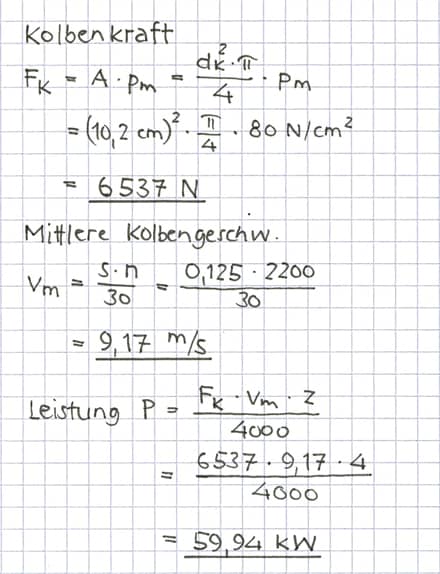 Kolbenkraft
F_K = A · p_m = d_K² · π / 4 · p_m
= (10,2 cm)² · π/4 · 80 N/cm²
= 6537 N
Mittlere Kolbengeschw.
V_m = s · n / 30 = 0,125 · 2200 / 30
= 9,17 m/s
Leistung P = F_K · V_m · z / 4000
= 6537 · 9,17 · 4 / 4000
= 59,94 kW